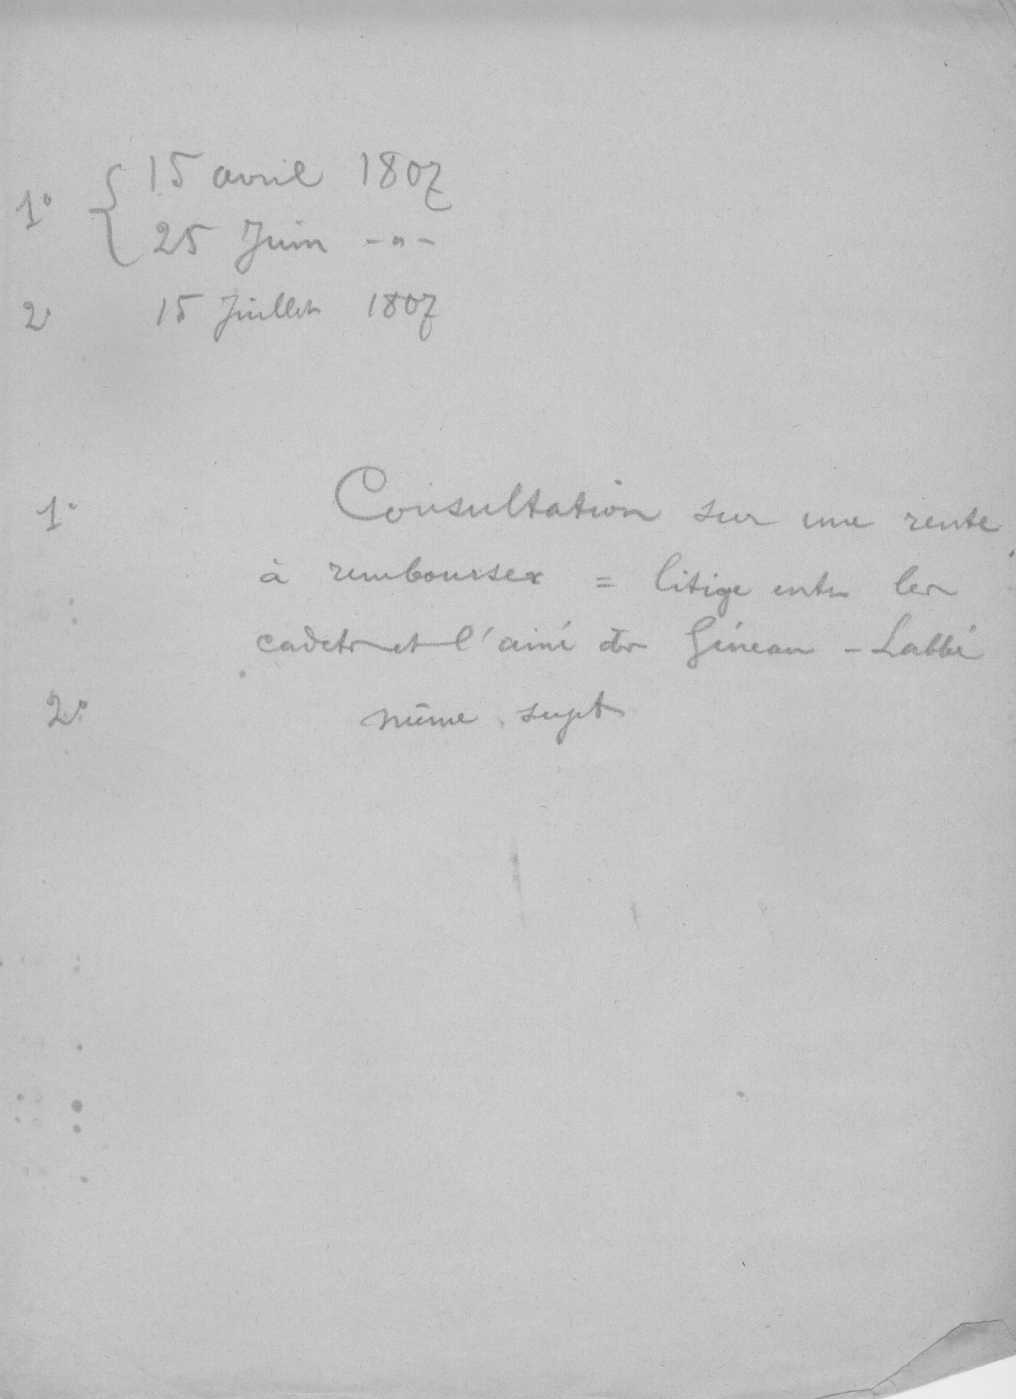 1° { 15 avril 1807
25 Juin -"-
2° 15 Juillet 1807
1° Consultation sur une rente
à rembourser = litige entre les
cadets et l'ainé des Géneau - Labbé
2° même sujet